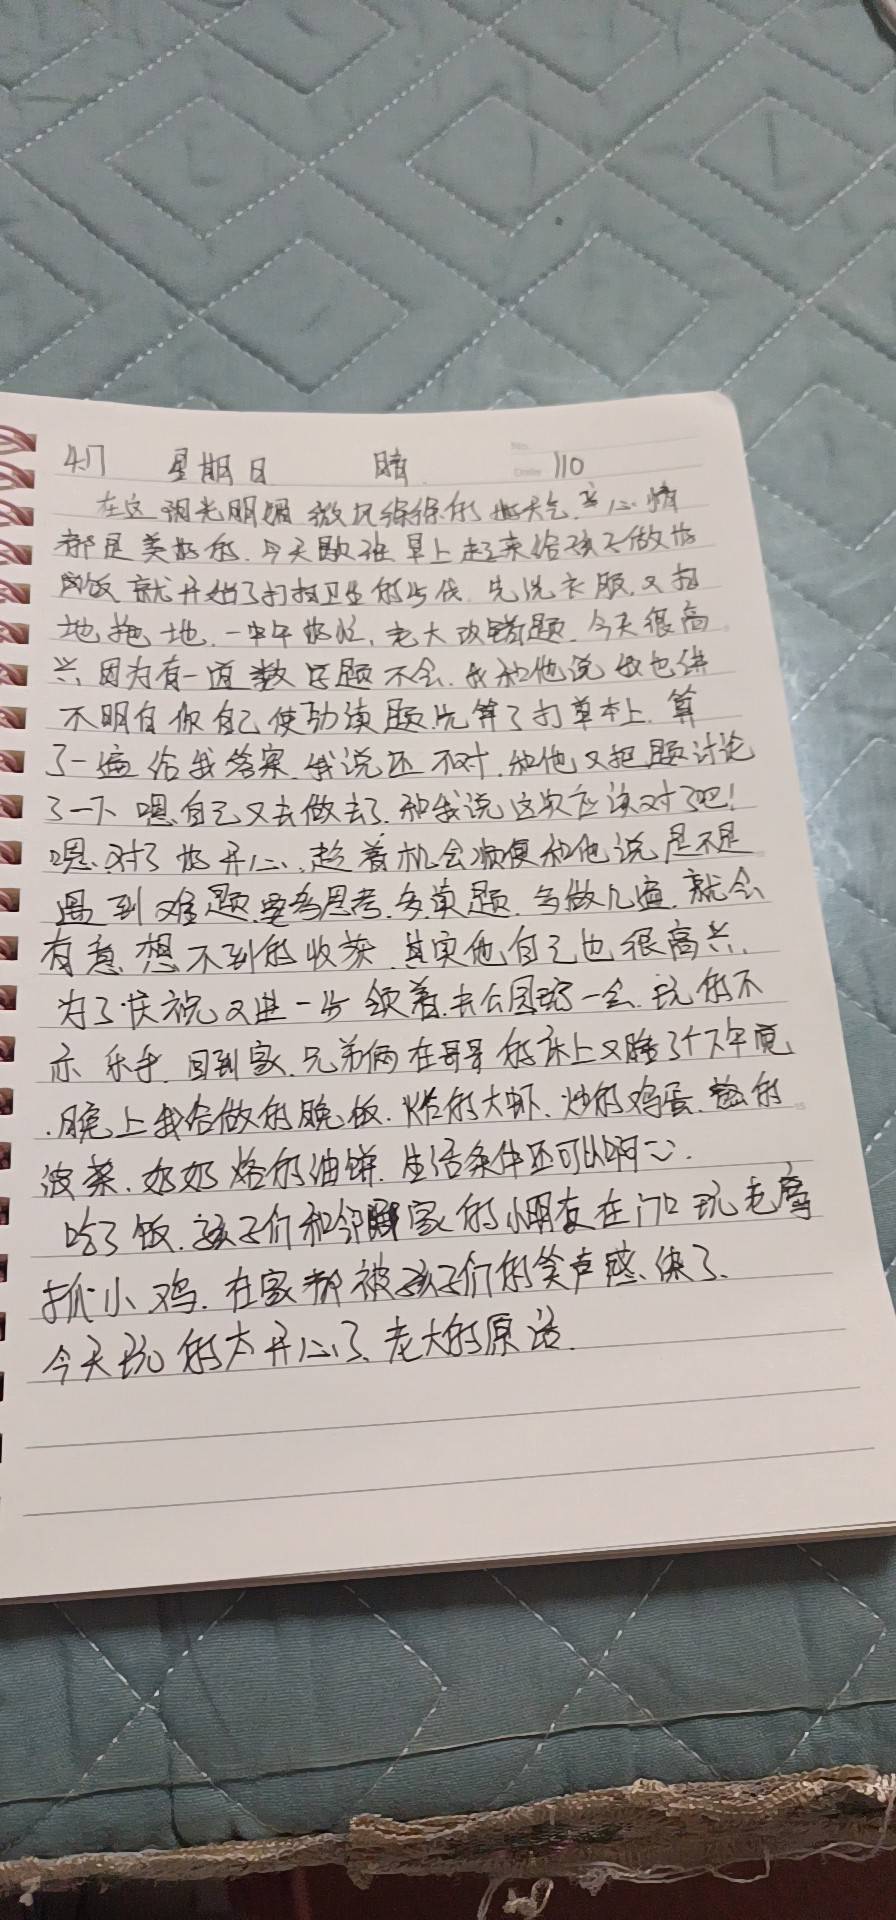 4.17 星期日 晴 110
No.
Date
在这阳光明媚微风徐徐的好天气,心情
都是美好的.今天歇班早上起来给孩子做好
饭就开始了打扫卫生的步伐.先洗衣服.又扫
地拖地.一中午好忙,老大改错题.今天很高
兴,因为有一道数学题不会.我和他说我也讲
不明白你自己使劲读题,先算了打草本上.算
了一遍给我答案.我说还不对.和他又把题讨论
了一下嗯自己又去做去了.和我说这次应该对了吧!
嗯.对了好开心、趁着机会顺便和他说是不是
遇到难题要多思考.多读题.多做几遍.就会
有意想不到的收获.其实他自己也很高兴.
为了庆祝又进一步领着去公园玩一会.玩的不
亦乐乎.回到家.兄弟俩在哥哥的床上又睡了个下午觉
.晚上我给做的晚饭.的大虾.炒的鸡蛋.的
菠菜.奶奶烙的油饼.生活条件还可以啊
吃了饭.孩子们和邻家的小朋友在门口玩老鹰
抓小鸡.在家都被孩子们的笑声感了.
今天玩的太开心了、老大的原话.